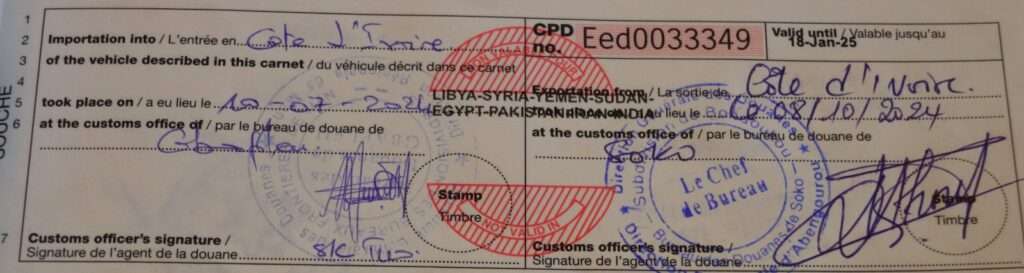 1
2 Importation into / L'entrée en Côte d'Ivoire
3 of the vehicle described in this carnet / du véhicule décrit dans ce carnet
4
5 took place on / a eu lieu le 10-07-2024
6 at the customs office of / par le bureau de douane de
Stamp
Timbre
7 Customs officer's signature /
Signature de l'agent de la douane
SOUCHE
CPD no. Eed0033349
Valid until / Valable jusqu'au
18-Jan-25
Exportation from / La sortie de Côte d'Ivoire.
LIBYA-SYRIA-YEMEN-SUDAN-
EGYPT-PAKISTAN-IRAN-INDIA
eu lieu le Ce 08/10/2024
at the customs office of / par le bureau de douane de
SOKO
Le Chef
de Bureau
Douanes de Soko
d'Abengourou
Stamp
Timbre
NOT VALID IN
Customs officer's signature /
Signature de l'agent de la douane